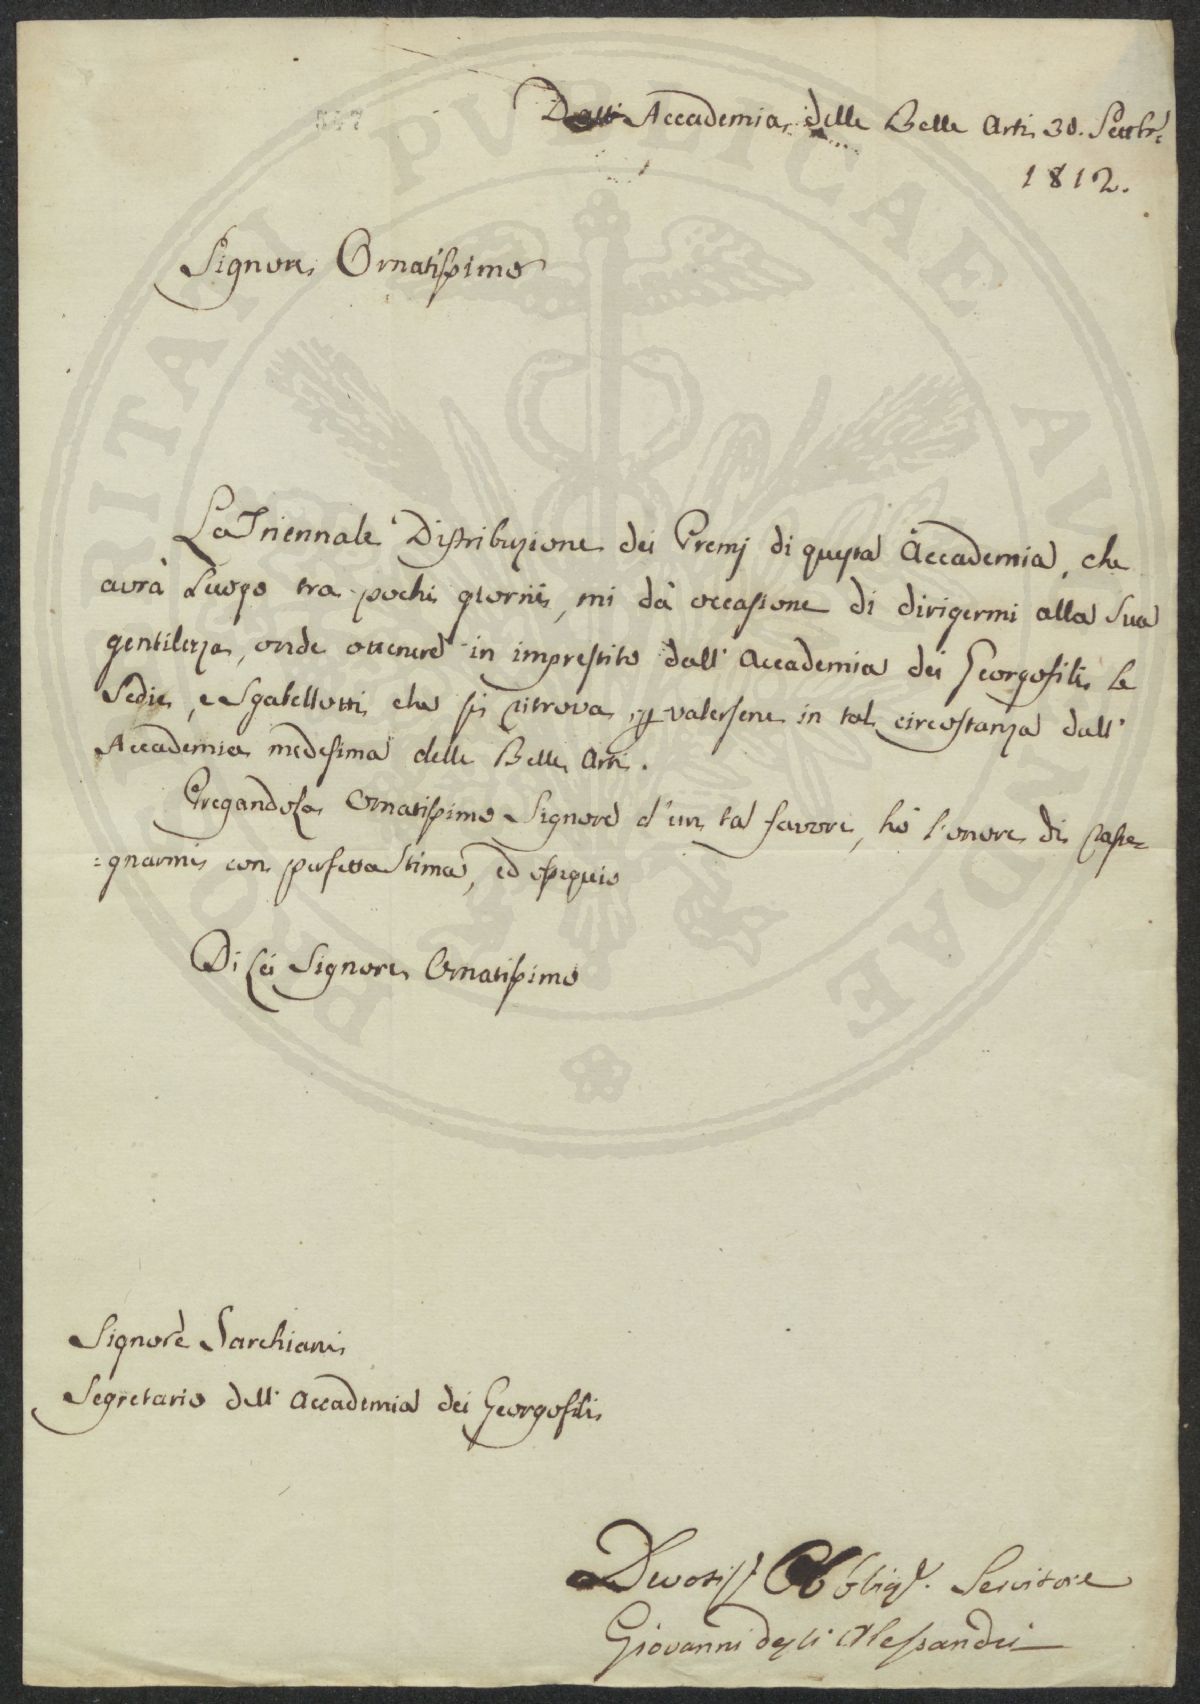 Dall' Accademia delle Belle Arti 30. Settbr.
1812.
547
Signore Ornatissimo
La Triennale Distribuzione dei Premj di questa Accademia, che
avrà Luogo tra pochi giorni, mi dà occasione di dirigermi alla Sua
gentilezza, onde ottenere in imprestito dall' Accademia dei Georgofili le
Sedie, e Sgabellotti che si ritrova, p valersene in tal circostanza dall'
Accademia medesima delle Belle Arti.
Pregandola Ornatissimo Signore d'un tal favore, hò l'onore di rasse=
=gnarmi con perfetta Stima, ed ossequio
Di Lei Signore Ornatissimo
Signore Sarchiani
Segretario dell' Accademia dei Georgofili
Devotiss. Obbligs. Servitore
Giovanni degli Alessandri
PROSPERITATI PVBLICAE AVGENDAE